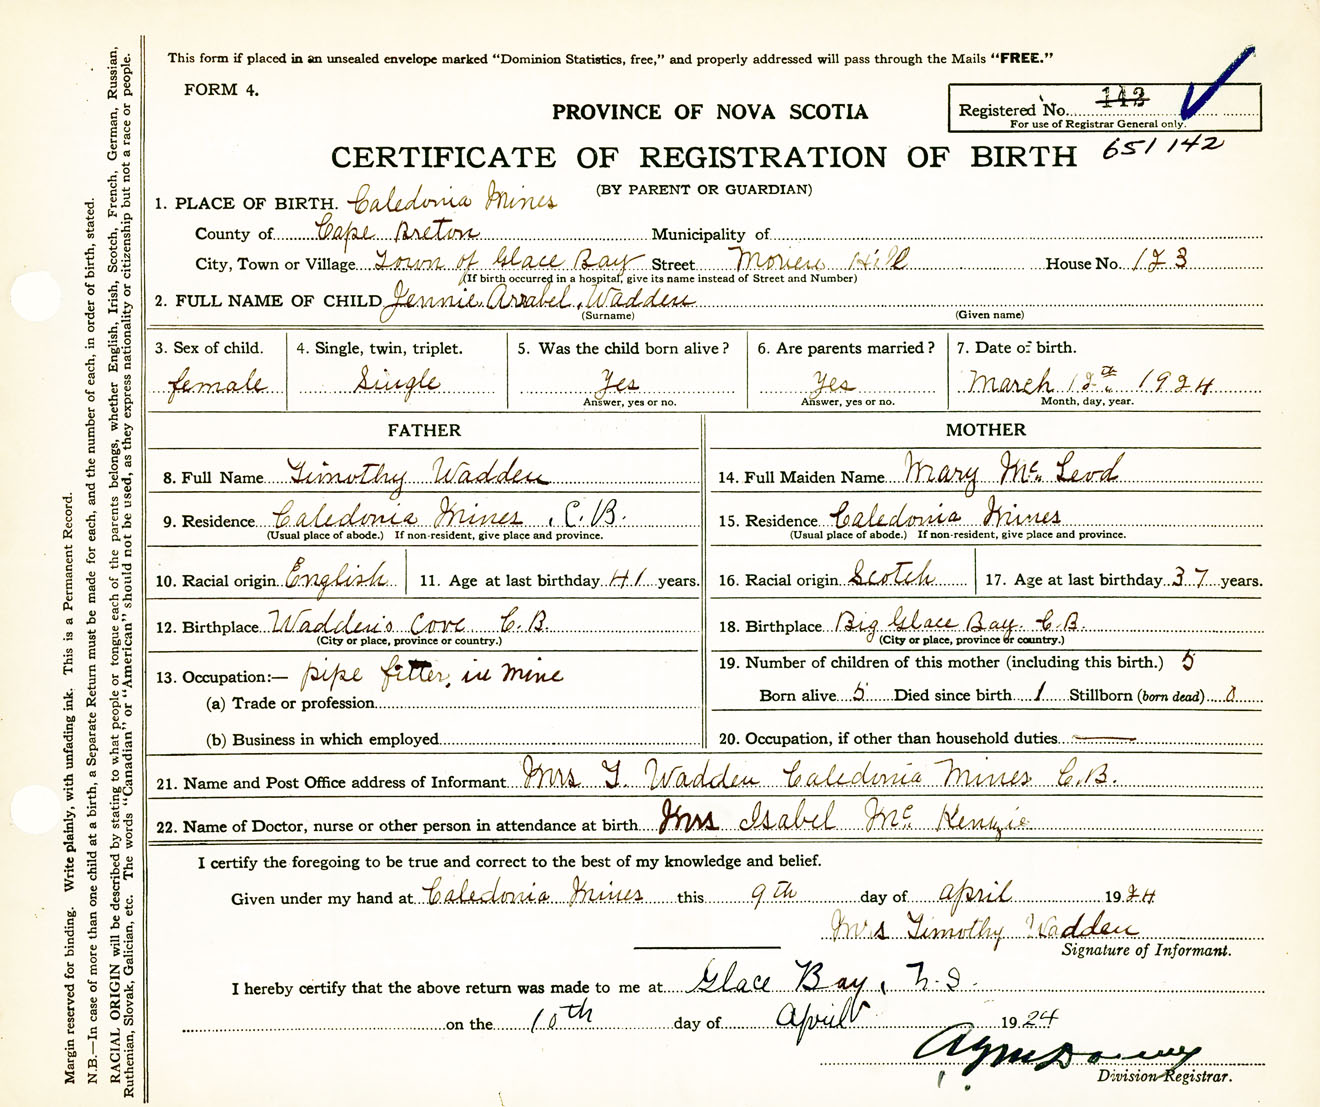 This form if placed in an unsealed envelope marked “Dominion Statistics, free,” and properly addressed will pass through the Mails “FREE.”
FORM 4.
Registered No. 142
For use of Registrar General only.
PROVINCE OF NOVA SCOTIA
CERTIFICATE OF REGISTRATION OF BIRTH 651142
(BY PARENT OR GUARDIAN)
1. PLACE OF BIRTH. Caledonia Mines
County of Cape Breton Municipality of
City, Town or Village Town of Glace Bay Street Morien Hill House No. 123
(If birth occurred in a hospital, give its name instead of Street and Number)
2. FULL NAME OF CHILD Jennie Arrabel Wadden
(Surname) (Given name)
3. Sex of child. 4. Single, twin, triplet. 5. Was the child born alive? 6. Are parents married? 7. Date of birth.
female Single Yes Yes March 12th 1924
Answer, yes or no. Answer, yes or no. Month, day, year.
FATHER MOTHER
8. Full Name Timothy Wadden 14. Full Maiden Name Mary Mc. Leod
9. Residence Caledonia Mines, C.B. 15. Residence Caledonia Mines
(Usual place of abode.) If non-resident, give place and province. (Usual place of abode.) If non-resident, give place and province.
10. Racial origin English 11. Age at last birthday 41 years. 16. Racial origin Scotch 17. Age at last birthday 37 years.
12. Birthplace Wadden's Cove C.B. 18. Birthplace Big Glace Bay. C.B.
(City or place, province or country.) (City or place, province or country.)
13. Occupation:— pipe fitter, in mine 19. Number of children of this mother (including this birth.) 5
(a) Trade or profession Born alive 5 Died since birth 1 Stillborn (born dead) 0
(b) Business in which employed 20. Occupation, if other than household duties —
21. Name and Post Office address of Informant Mrs T. Wadden Caledonia Mines C.B.
22. Name of Doctor, nurse or other person in attendance at birth Mrs Isabel Mc. Kenzie
I certify the foregoing to be true and correct to the best of my knowledge and belief.
Given under my hand at Caledonia Mines this 9th day of april 1924
Mrs Timothy Wadden
Signature of Informant.
I hereby certify that the above return was made to me at Glace Bay, N.S.
on the 10th day of April 1924
Division Registrar.
Margin reserved for binding. Write plainly, with unfading ink. This is a Permanent Record.
N.B.—In case of more than one child at a birth, a Separate Return must be made for each, and the number of each, in order of birth, stated.
RACIAL ORIGIN will be described by stating to what people or tongue each of the parents belongs, whether English, Irish, Scotch, French, German, Russian,
Ruthenian, Slovak, Galician, etc. The words “Canadian” or “American” should not be used, as they express nationality or citizenship but not a race or people.